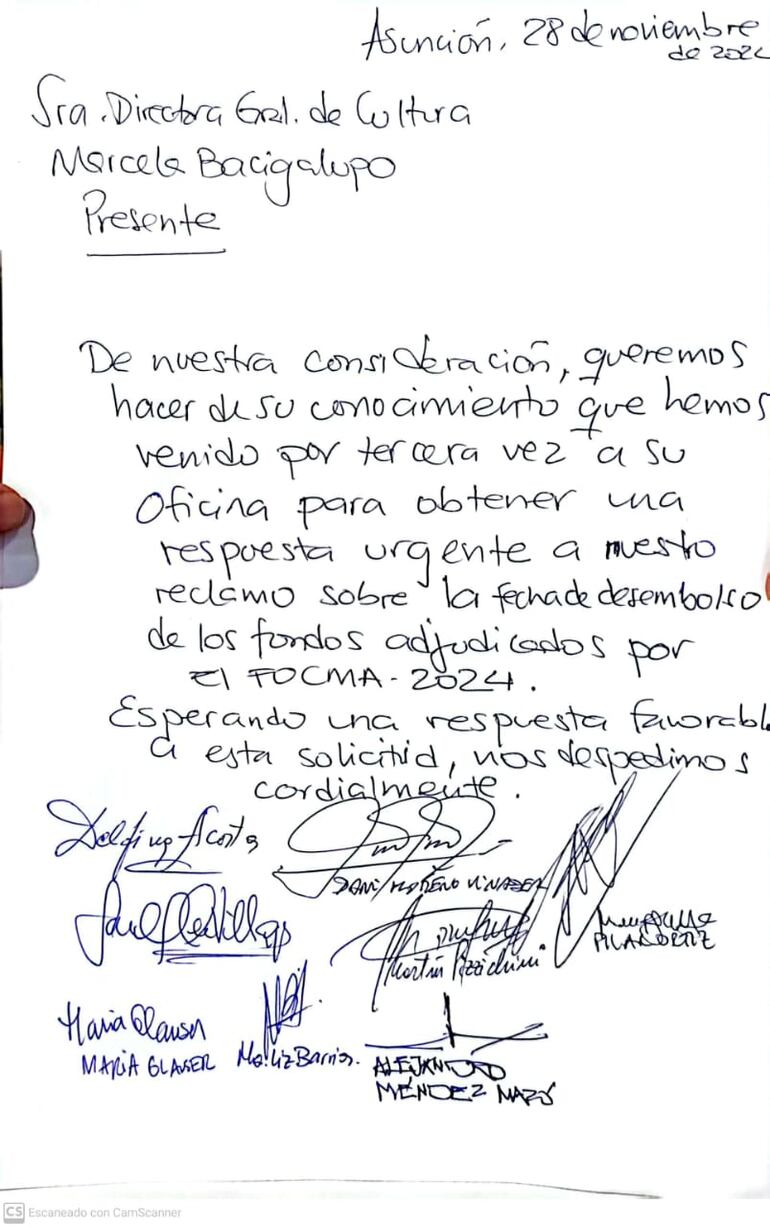 Asunción, 28 de noviembre
de 202
Sra. Directora Gral. de Cultura
Marcela Bacigalupo
Presente
De nuestra consideración, queremos
hacer de su conocimiento que hemos
venido por tercera vez a su
Oficina para obtener una
respuesta urgente a nuesto
reclamo sobre la fecha de desembolso
de los fondos adjudicados por
El FOCMA-2024.
Esperando una respuesta favorabl
a esta solicitid, nos despedimos
cordialmente.
Delfina Acosta
DANI MORENO VINADER
Martín Pizzichini
PILAR ORTIZ
Maria Glauser
MARIA GLAUSER
Ma. Liz Barrios.
ALEJANDRO
MÉNDEZ MAZÓ
CS Escaneado con CamScanner